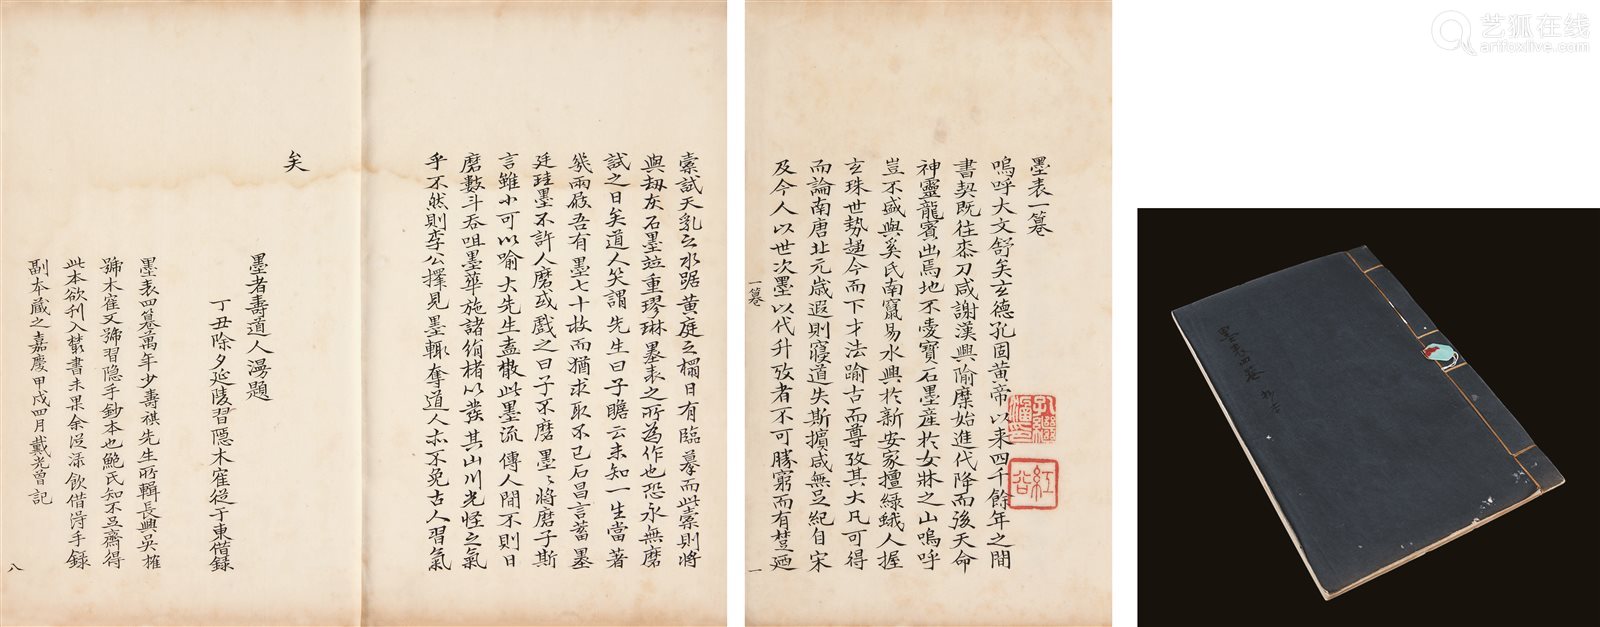 墨表一籑
嗚呼大文舒矣玄德孔固黃帝以来四千餘年之間
書契既往桼刀咸謝漢興隃麋始進代降而後天命
神靈龍賓出焉地不愛寶石墨産於女牀之山嗚呼
豈不盛與奚氏南竄易水興於新安家擅緑蛾人握
玄珠世勢趨今而下才法踰古而尊攷其大凡可得
而論南唐北元歳遐則寢道失斯擯咸無足紀自宋
及今人以世次墨以代升攷者不可勝窮而有楚廼
一籑
一
紅谷
橐試天乳之水踞黃庭之榻日有臨摹而此橐則將
與劫灰石墨竝重璆琳墨表之所為作也恐永無磨
試之日矣道人笑謂先生曰子瞻云未知一生當著
幾兩屐吾有墨七十枚而猶求取不已石昌言蓄墨
廷珪墨不許人磨或戲之曰子不磨墨墨將磨子斯
言雖小可以喻大先生盍散此墨流傳人間不則日
磨數斗吞咀墨華施諸絹楮以發其山川光怪之氣
乎不然則李公擇見墨輒奪道人亦不免古人習氣
矣
墨者壽道人漫題
丁丑除夕延陵習隱木寉從于東借録
墨表四籑萬年少壽祺先生所輯長興吳㩁
號木寉又號習隱手鈔本也鮑氏知不足齋得
此本欲刊入叢書未果余從渌飲借得手録
副本藏之嘉慶甲戌四月戴光曾記
八
墨表四籑
艺狐在线
artfoxlive.com